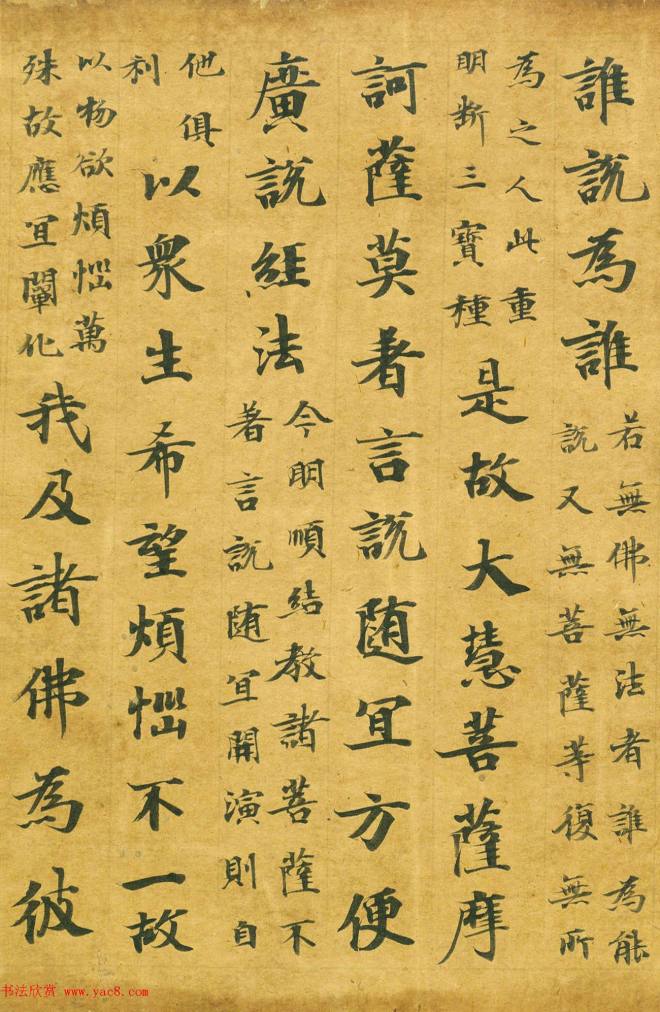 誰說為誰
若無佛無法者誰為能
說又無菩薩等復無所
為之人此重
明断三寶種
是故大慧菩薩摩
訶薩莫著言說随冝方便
廣說經法
今明順結教諸菩薩不
著言說随冝開演則自
他俱
利
以衆生希望煩惱不一故
以物欲煩惱萬
殊故應冝闡化
我及諸佛為彼
书法欣赏 www.yac8.com